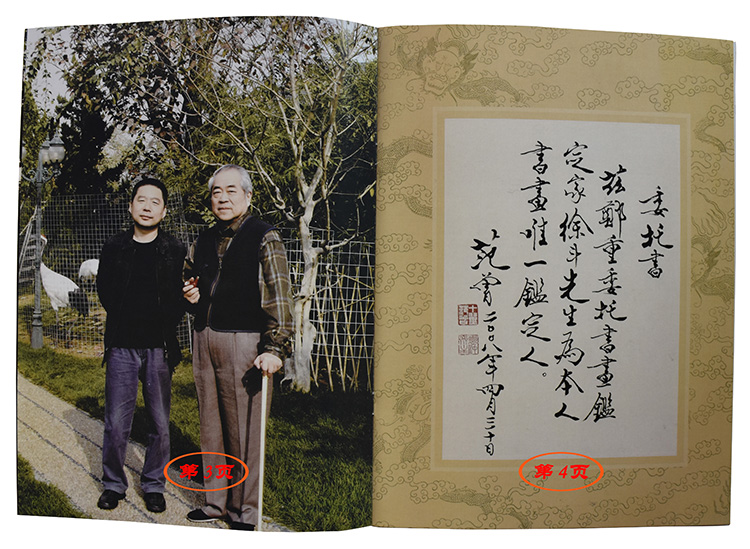 委托书
兹郑重委托书畫鑑
定家徐斗先生為本人
书畫唯一鑑定人。
范曾
二〇〇八年四月三十日
第 3页
第 4页